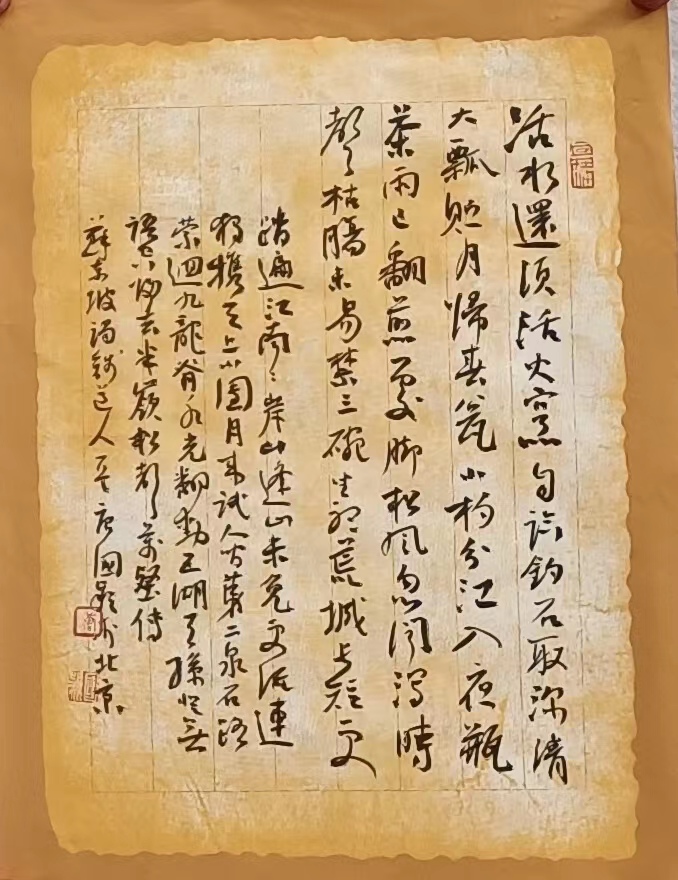 活水還須活火烹自臨釣石取深清
大瓢貯月歸春瓮小杓分江入夜瓶
茶雨已翻煎處脚松風忽聞瀉時
聲枯腸未易禁三碗坐聽荒城長短更
踏遍江南々岸山逢山未免更流連
獨攜天上小團月來試人間第二泉石路
縈迴九龍脊水光翻動五湖天孫登無
語空歸去半嶺松聲萬壑傳
蘇東坡謁錢道人 唐國強於北京